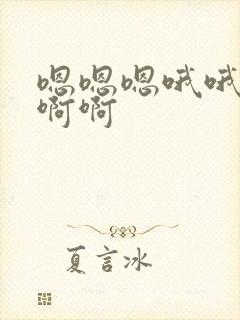 嗯嗯嗯哦哦
啊啊
夏言冰